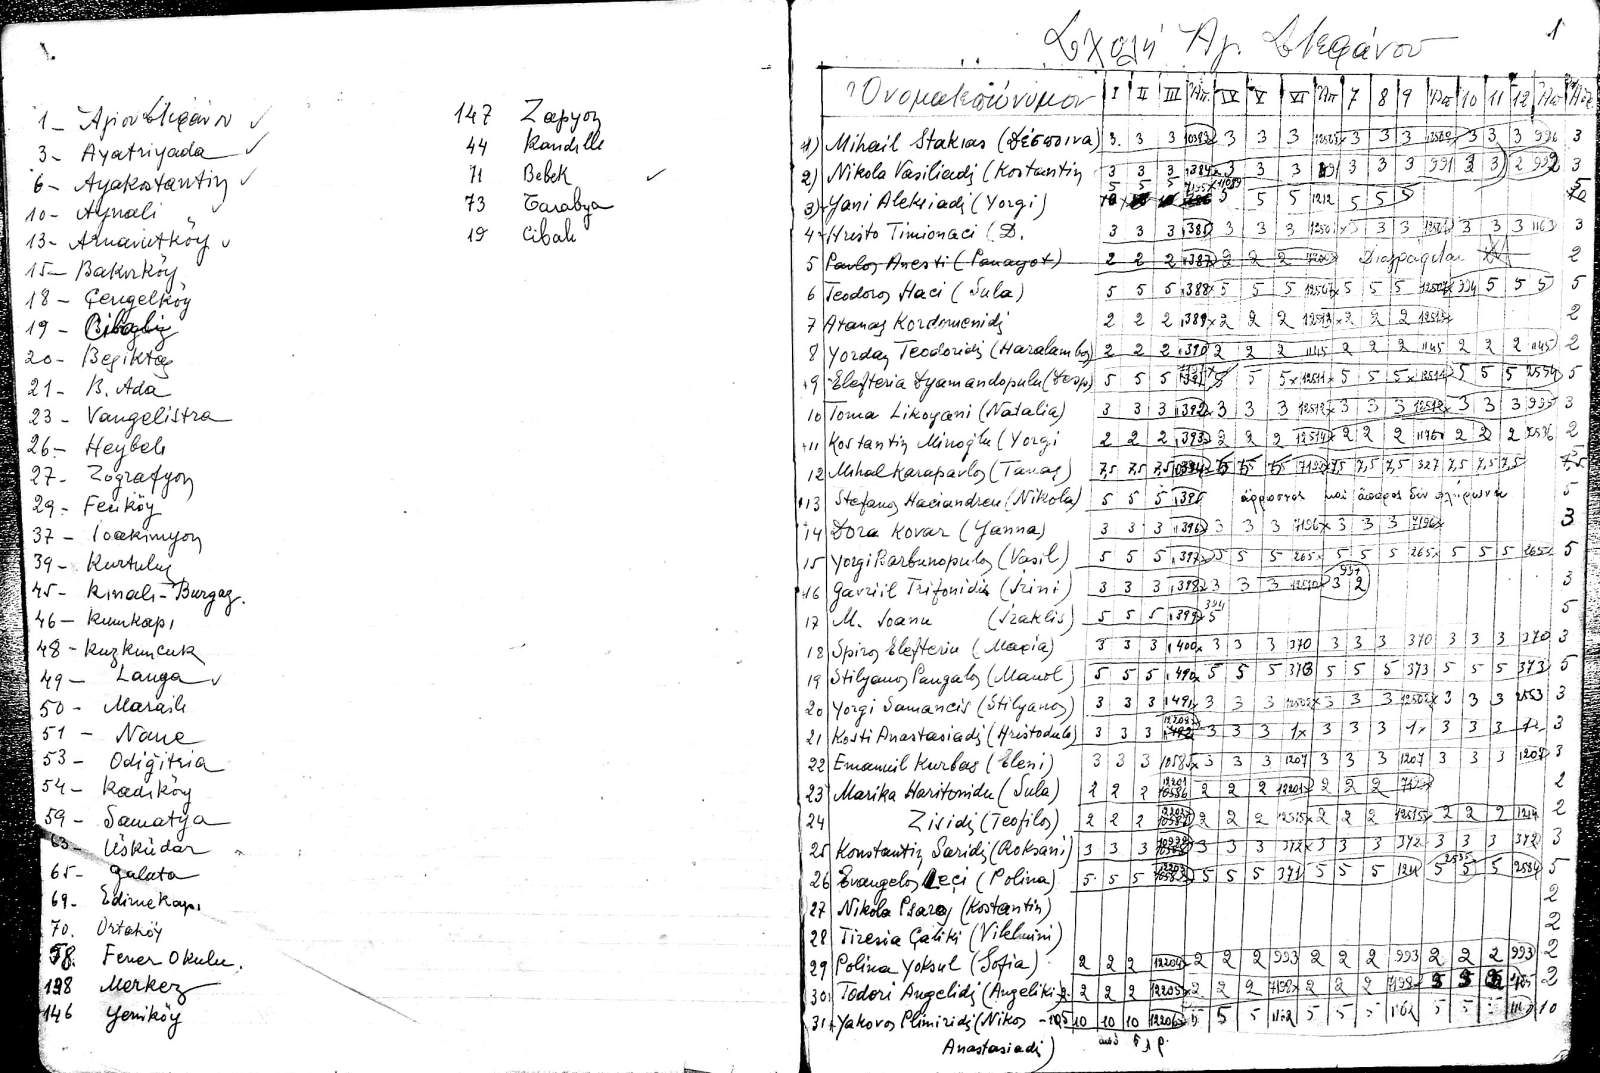 1 - Αγίου Στεφάνου ✓
3 - Ayatriyada ✓
6 - Ayakostantin ✓
10 - Aynali
13 - Arnavutköy ✓
15 - Bakırköy
18 - Çengelköy
19 -
20 - Beşiktaş
21 - B. Ada
23 - Vangelistra
26 - Heybeli
27 - Zografyon
29 - Feriköy
37 - Ioakimyon
39 - Kurtuluş
45 - Kınalı - Burgaz.
46 - Kumkapı
48 - Kuzkuncuk
49 - Langa ✓
50 - Maraşlı
51 - Nane
53 - Odigitria
54 - Kadıköy
59 - Samatya
63 - Üsküdar
65 - Galata
69 - Edirnekapı
70. Ortaköy
98. Fener Okulu.
198 Merkez
146 Yeniköy
147 Zapyon
44 Kandilli
71 Bebek ✓
73 Tarabya
19 Cibali
1
Σχολή Αγ. Στεφάνου
Ονοματεπώνυμον I II III Απ. IV V VI Απ 7 8 9 Απ 10 11 12 Απ
1) Mihail Stakias (Δέσποινα) 3 3 3 3 3 3 3 3 3 3 3 3 3
2) Nikola Vasiliadi (Kostantin 3 3 3 3 3 3 3 3 3 991 3 3 2 992 3
3) Yani Aleksiadi (Yorgi) 5 5 5 1212 5 5 5
4 Hristo Timionaci (D. 3 3 3 3 3 3 3 3 3 3 3 3 1163 3
5 Pavlos Anesti (Panayot) 2 2 2 387 2 2 2 Διαγράφεται 2
6 Teodoros Haci (Sula) 5 5 5 388 5 5 5 5 5 5 394 5 5 5 5
7 Atanas Kordomenidi 2 2 2 389 2 2 2 2 2 2 2
8 Yordan Teodoridis (Haralambos) 2 2 2 390 2 2 2 1145 2 2 2 1145 2 2 2 1145 2
9 Elefteria Dyamandopulu (Desp) 5 5 5 5 5 5 5 5 5 5 5 5 2554 5
10 Toma Likoyani (Natalia) 3 3 3 392 3 3 3 12512 3 3 3 12512 3 3 3 935 3
11 Kostantin Minoğlu (Yorgi 2 2 2 393 2 2 2 12514 2 2 2 2 2 2 2536 2
12 Mihal Karapavlos (Tanaş) 7,5 7,5 7,5 7,5 7,5 7,5 7,5 7,5 7,5 327 7,5 7,5 7,5 7,5
13 Stefanos Haciandreu (Nikola) 5 5 5 395 άρρωστος και άπορος δεν πληρώνει 5
14 Dora Kovar (Yanna) 3 3 3 396 3 3 3 7196 3 3 3 7196 3
15 Yorgi Barbunopulos (Vasil) 5 5 5 397 5 5 5 265 5 5 5 265 5 5 5 265 5
16 Gavriil Trifonidis (Irini) 3 3 3 398 3 3 3 3 2 937 3
17 M. Ioanu (Iraklis) 5 5 5 399 5 394 5
18 Spiros Elefteriu (Μαρία) 3 3 3 400 3 3 3 370 3 3 3 370 3 3 3 370 3
19 Stilyanos Pangalos (Manol) 5 5 5 490 5 5 5 373 5 5 5 373 5 5 5 373 5
20 Yorgi Samancis (Stilyanos) 3 3 3 491 3 3 3 12502 3 3 3 12502 3 3 3 2553 3
21 Kosti Anastasiadi (Hristodulo) 3 3 3 3 3 3 1x 3 3 3 1x 3 3 3 1x 3
22 Emanuil Kurbas (Eleni) 3 3 3 10585 3 3 3 1207 3 3 3 1207 3 3 3 1207 3
23 Marika Haritonidu (Sula) 2 2 2 12201 10586 2 2 2 12201 2 2 2 2
24 Zisidi (Teofilos) 2 2 2 2 2 2 12515 2 2 2 12515 2 2 2 1214 2
25 Konstantin Saridi (Roksani) 3 3 3 3 3 3 372 3 3 3 372 3 3 3 372 3
26 Evangelos Leçi (Polina) 5 5 5 5 5 5 371 5 5 5 1211 5 5 5 2584 5
27 Nikola Psaros (Kostantin) 2
28 Tiresia Çaliki (Vilelmini) 2
29 Polina Yoksul (Sofia) 2 2 2 12204 2 2 2 993 2 2 2 993 2 2 2 993 2
30 Todori Angelidi (Angeliki) 2 2 2 12205 2 2 2 7198 2 2 2 7198 2
31 Yakovos Plimiridi (Nikos - 10 10 10 12206 5 5 5 1162 5 5 5 1162 5 5 5 10
Anastasiadi)